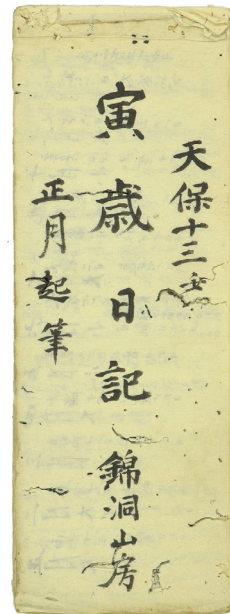 天保十三壬
寅歳日記 錦洞山房
正月起筆